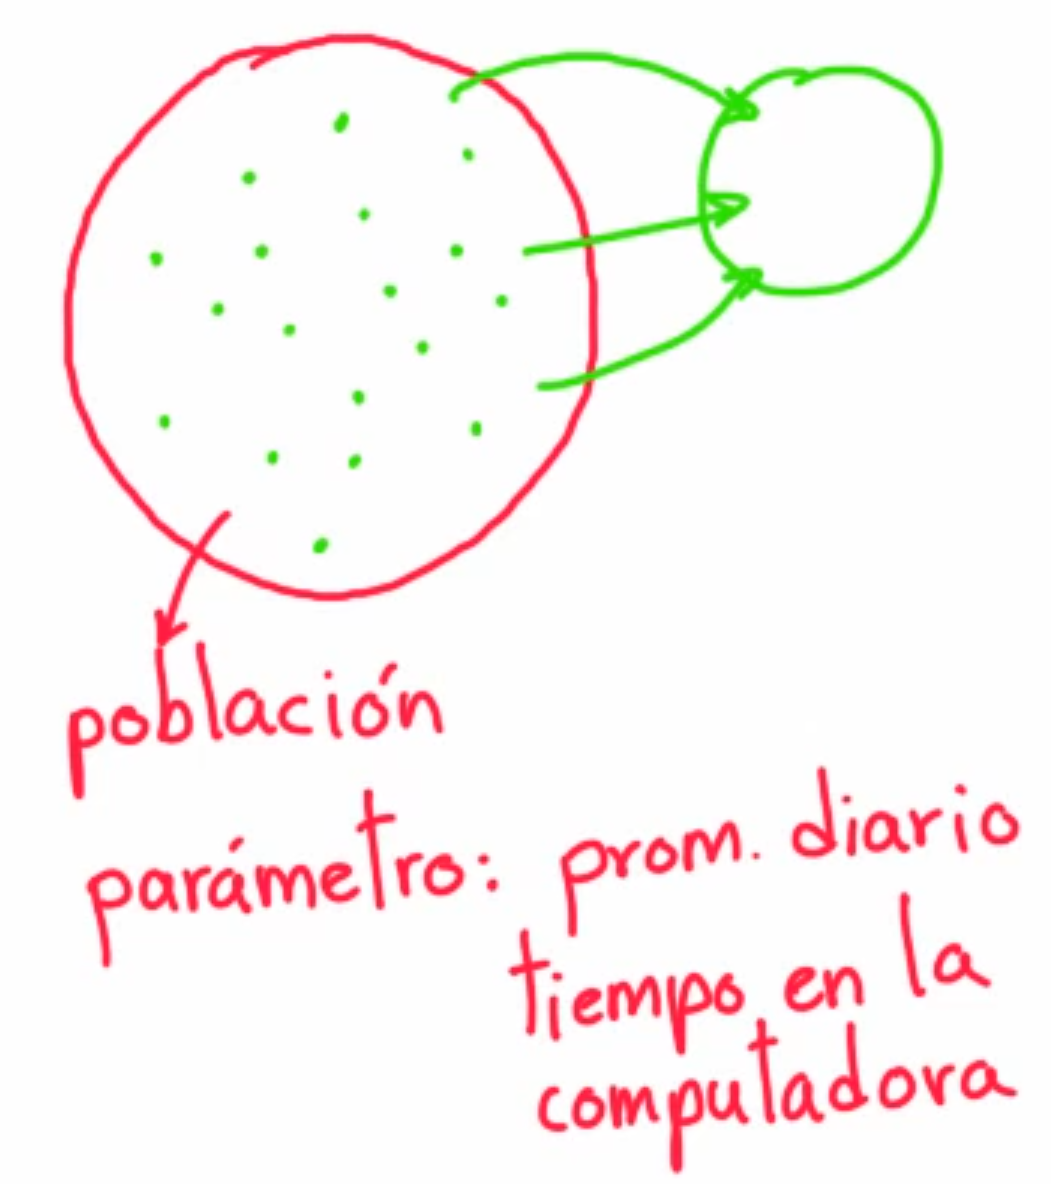 población
parámetro: prom. diario
tiempo en la
computadora